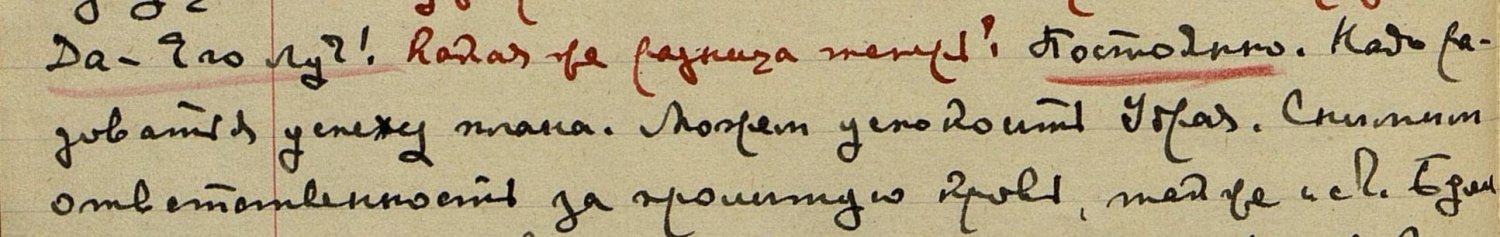 Да – Его луч! Какая же разница теперь! Постоянно. Надо ра-
доваться успеху плана. Может успокоить Удрая. Снимит
ответственность за пролитую кровь, также и с В. Будем